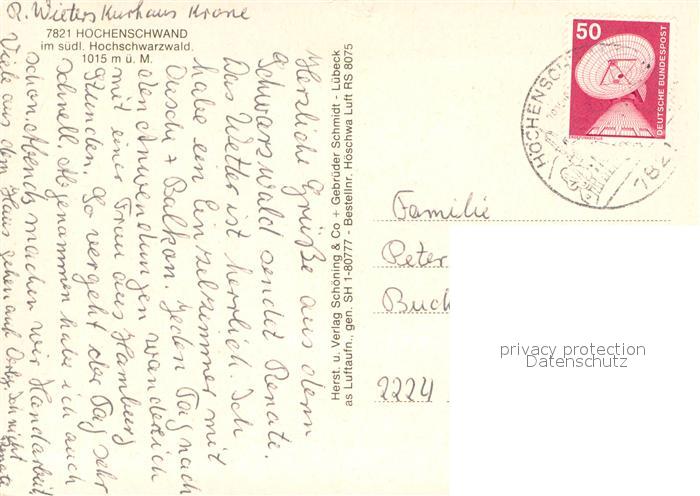 R. Wieters Kurhaus Krone
7821 HOCHENSCHWAND
im südl. Hochschwarzwald.
1015 m ü. M.
Herzliche Grüße aus dem
Schwarzwald sendet Renate.
Das Wetter ist herrlich. Ich
habe ein Einzelzimmer mit
Dusche + Balkon. Jeden Tag nach
den Anwendungen wandere ich
mit einer Frau aus Hamburg
Stunden. So vergeht der Tag sehr
schnell. Abgenommen habe ich auch
schon. Abends machen wir Handarbeit.
Viele aus dem Haus gehen auf
Renate
Herst. u. Verlag Schöning & Co + Gebrüder Schmidt - Lübeck
as Luftaufn., gen. SH 1-80777 - Bestellnr. Höschwa Luft RS 8075
50
DEUTSCHE BUNDESPOST
HÖCHENSCH
782
Familie
Peter
Buch
2224
privacy protection
Datenschutz